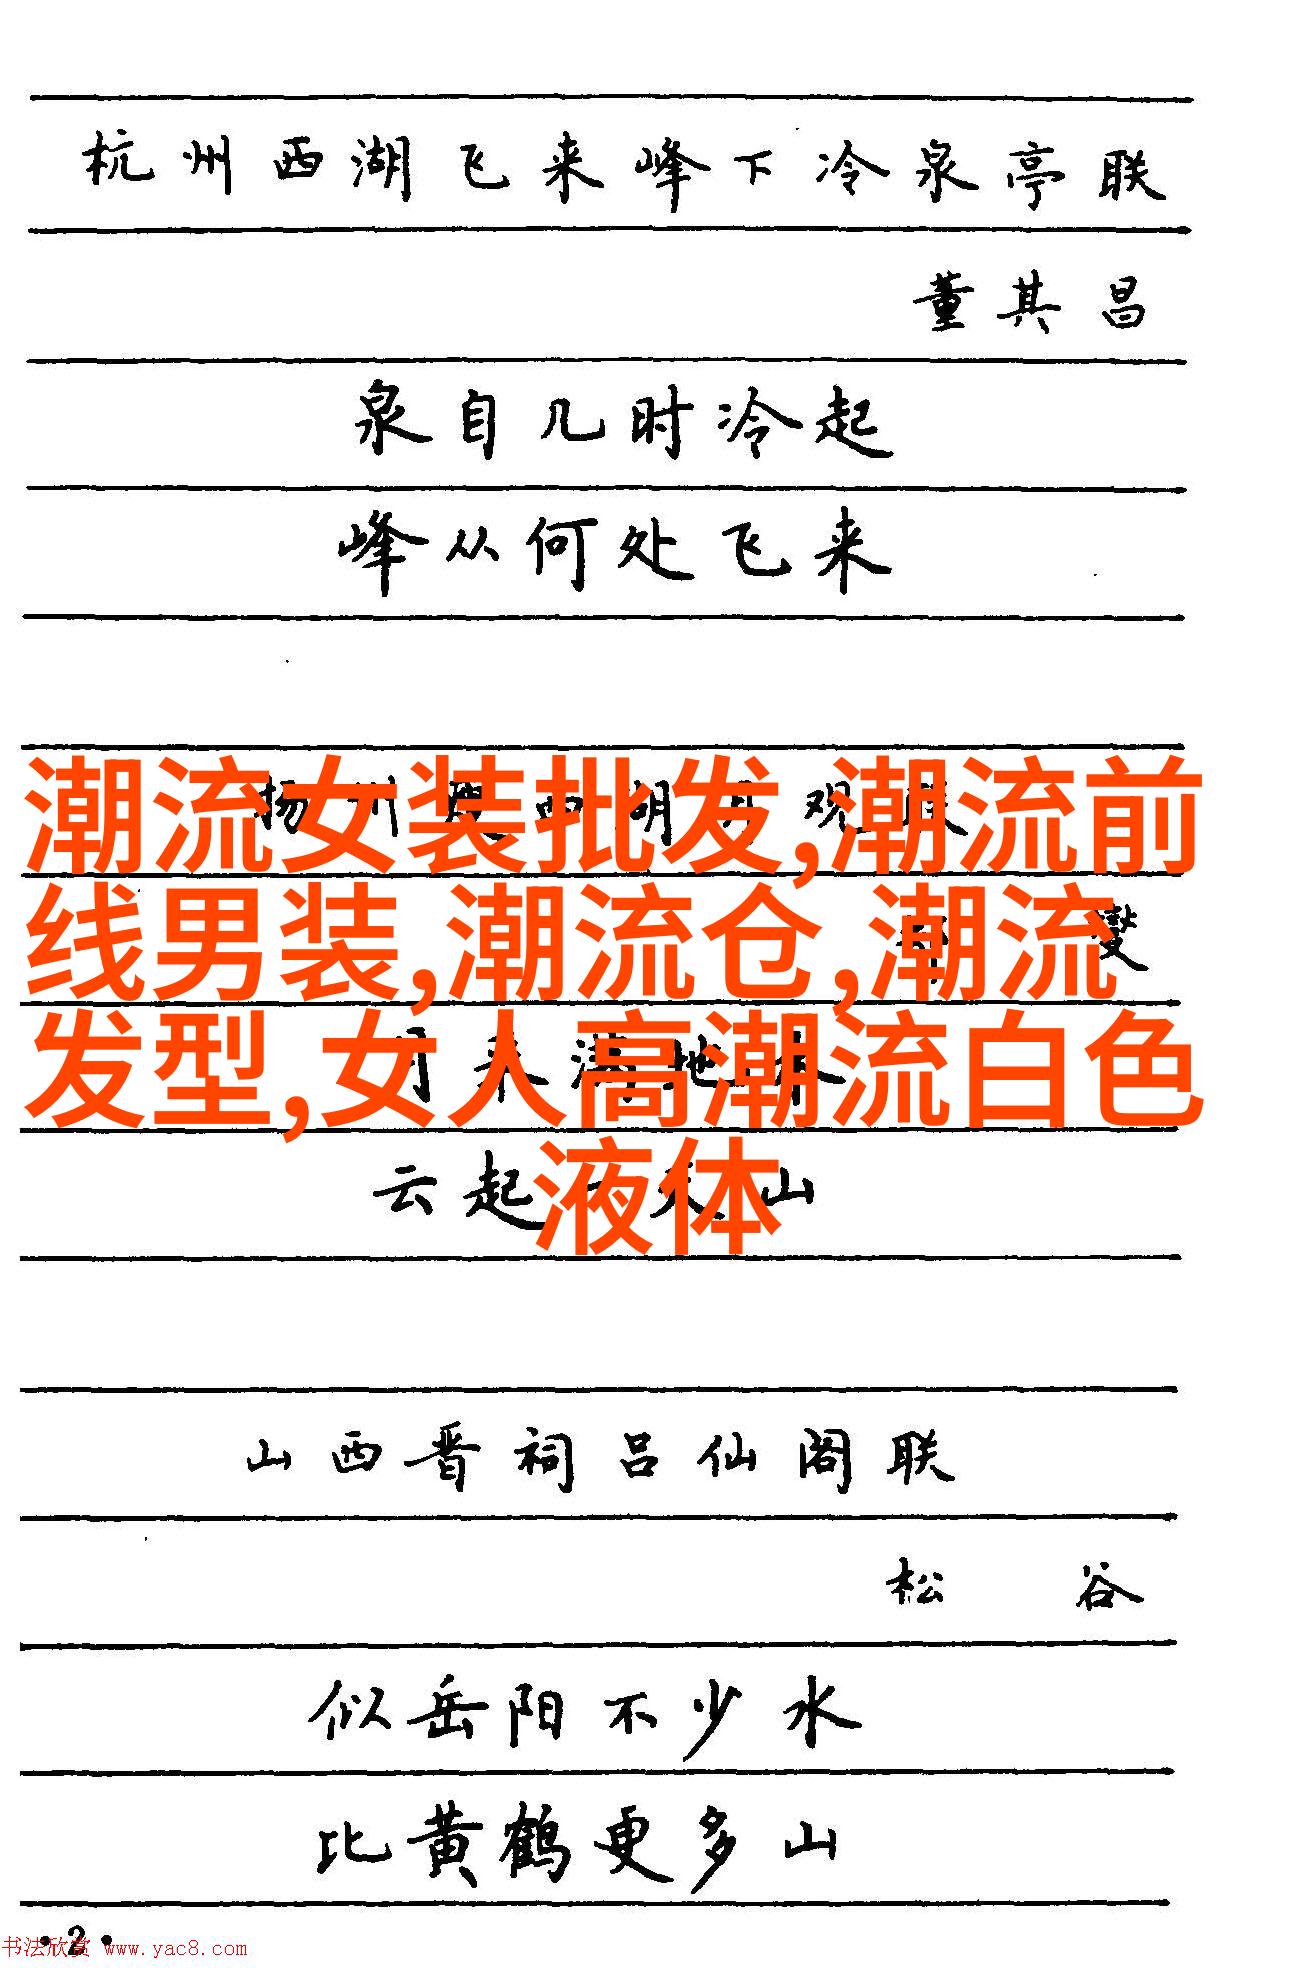 杭州西湖飞来峰下冷泉亭联
董其昌
泉自几时冷起
峰从何处飞来
扬州 西湖月观联
燮
潮流女装批发,潮流前
线男装,潮流仓,潮流
发型,女人高潮流白色
液体
月来满地水
云起一天山
山西晋祠吕仙阁联
松谷
似岳阳不少水
比黄鹤更多山
·2·
书法欣赏 www.yac8.com